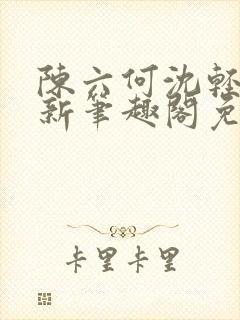 陳六何沈輕
新筆趣閣免
卡里卡里